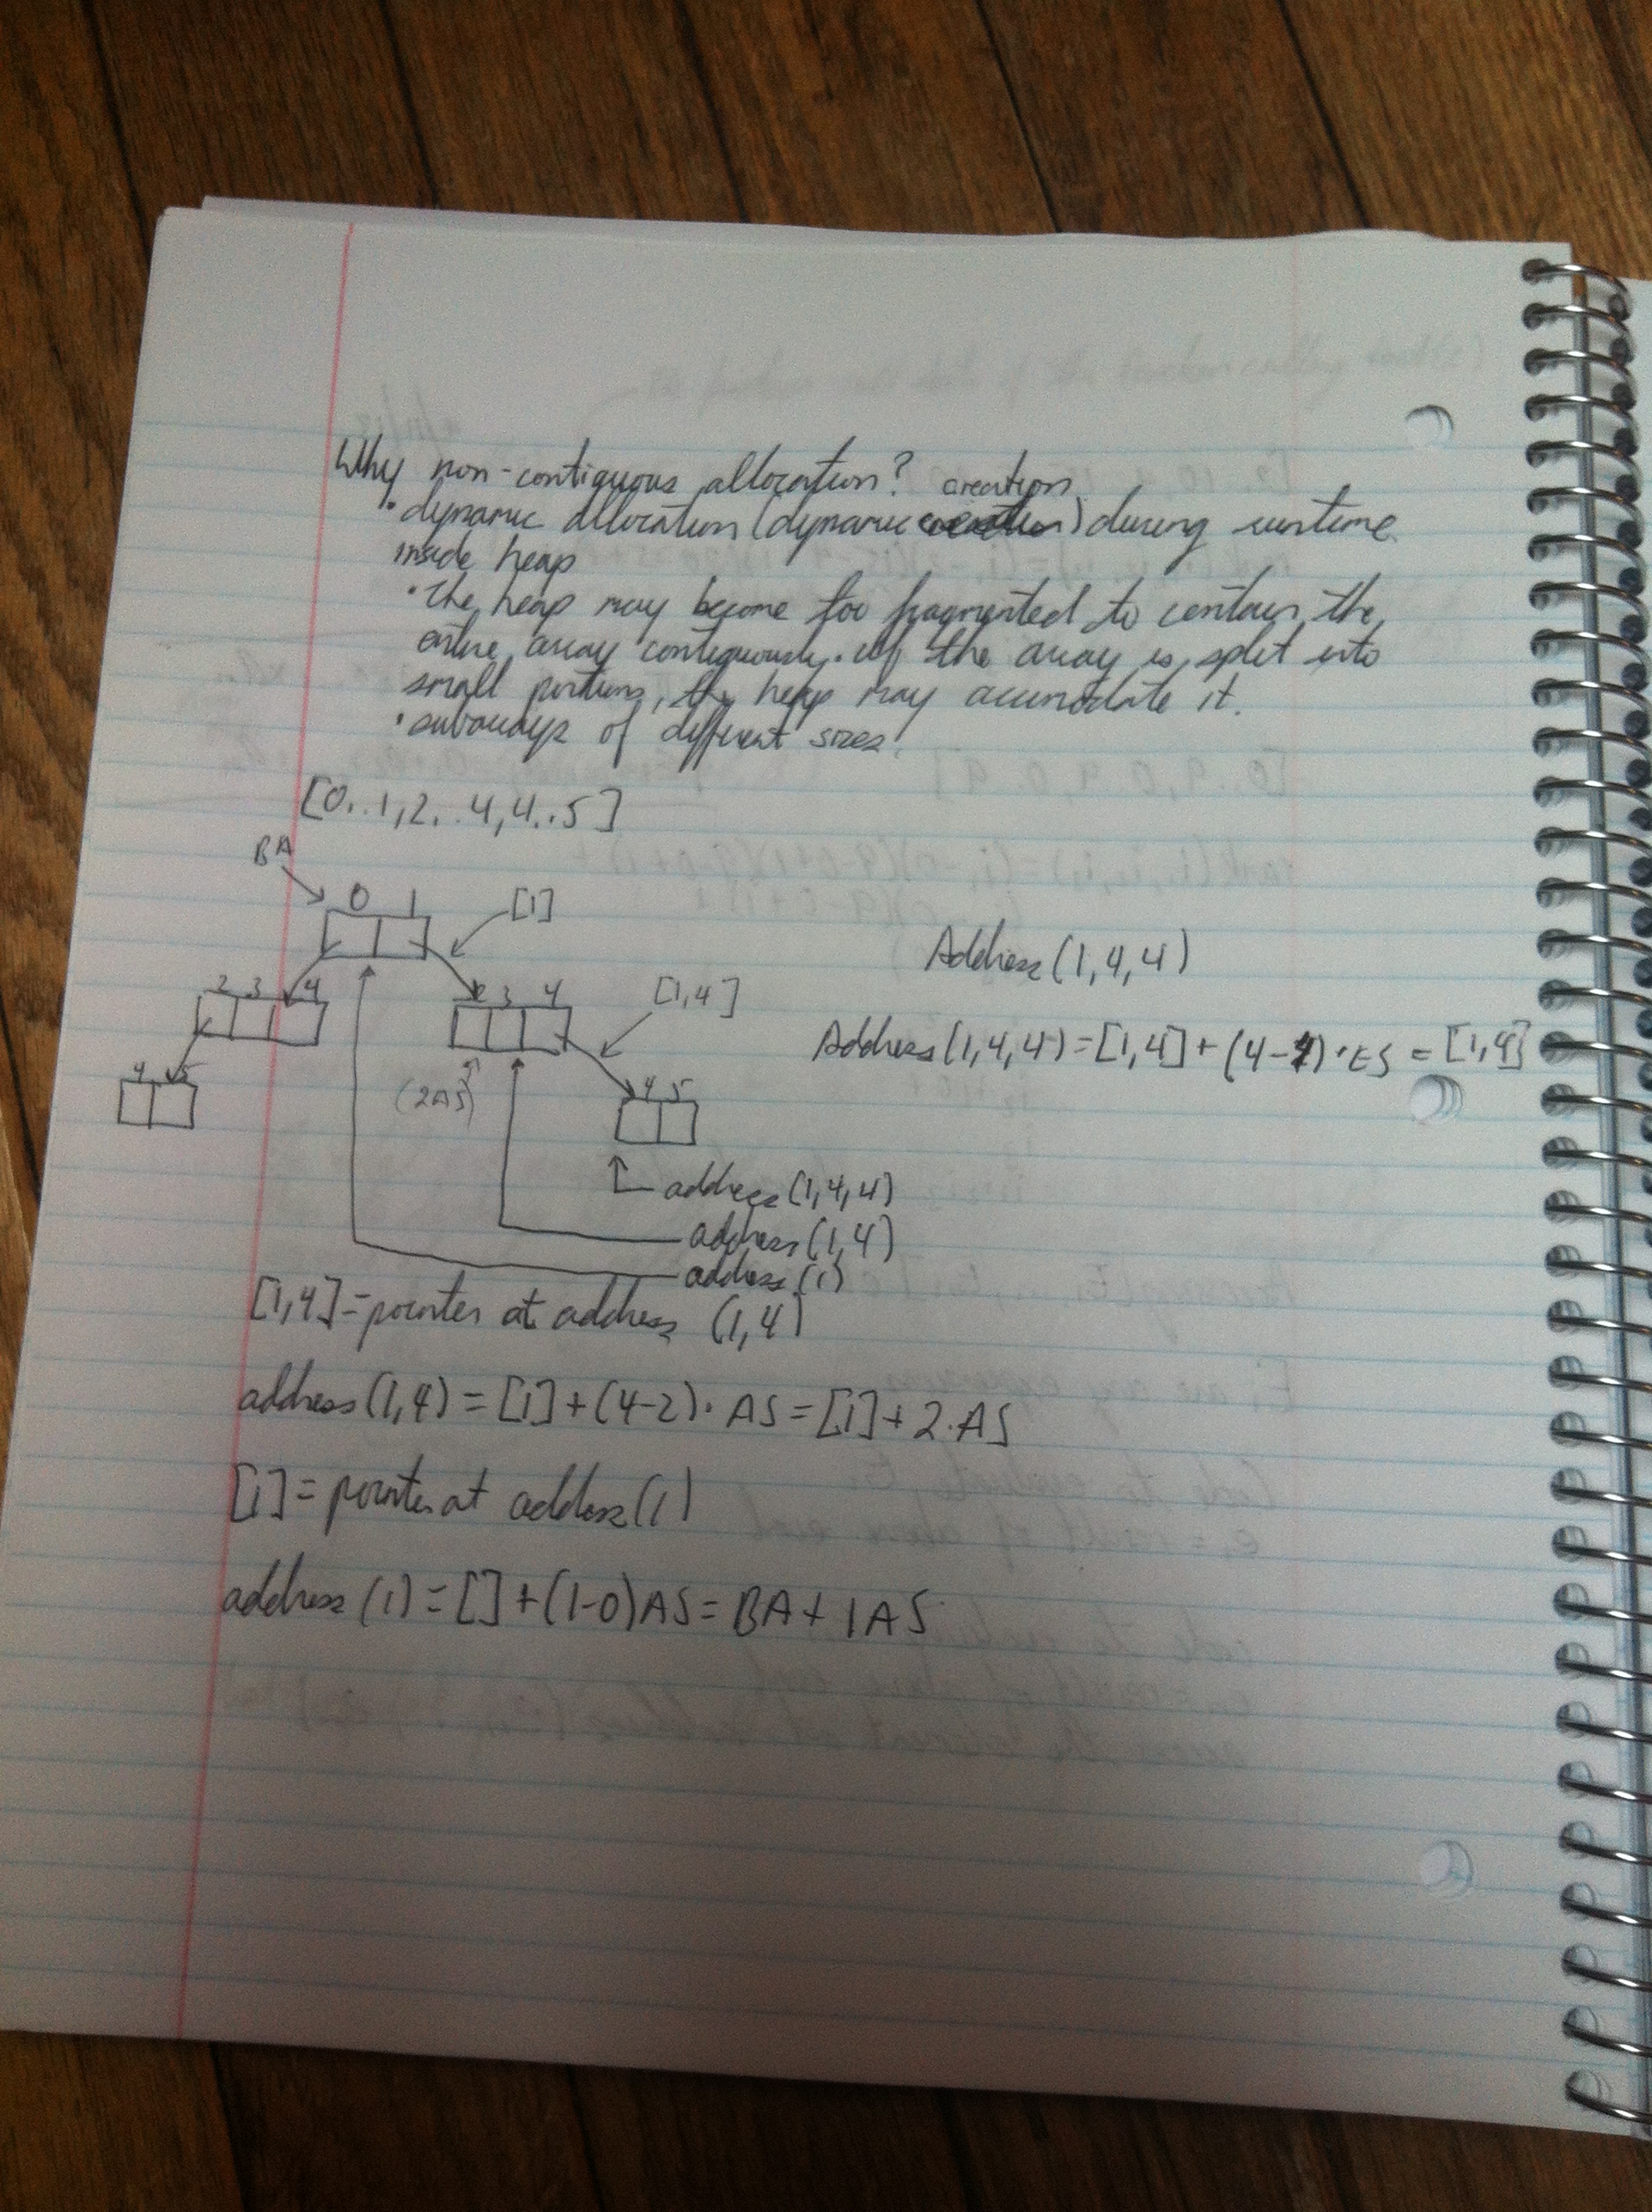 Why non-contiguous allocation? creation
• dynamic allocation (dynamic ) during runtime
inside heap
• the heap may become too fragmented to contain the
entire array contiguously. If the array is split into
small portions, the heap may accumodate it.
• subarrays of different sizes.
[0..1,2..4,4..5]
BA
0 1
[1]
2 3 4
2 3 4
[1,4]
4 5
(2AS)
4 5
address(1,4,4)
address(1,4)
address(1)
Address(1,4,4)
Address(1,4,4)=[1,4]+(4-4)·ES=[1,4]
[1,4]=pointer at address (1,4)
address(1,4)=[1]+(4-2)·AS=[1]+2·AS
[1]=pointer at address(1)
address(1)=[]+(1-0)AS=BA+1AS